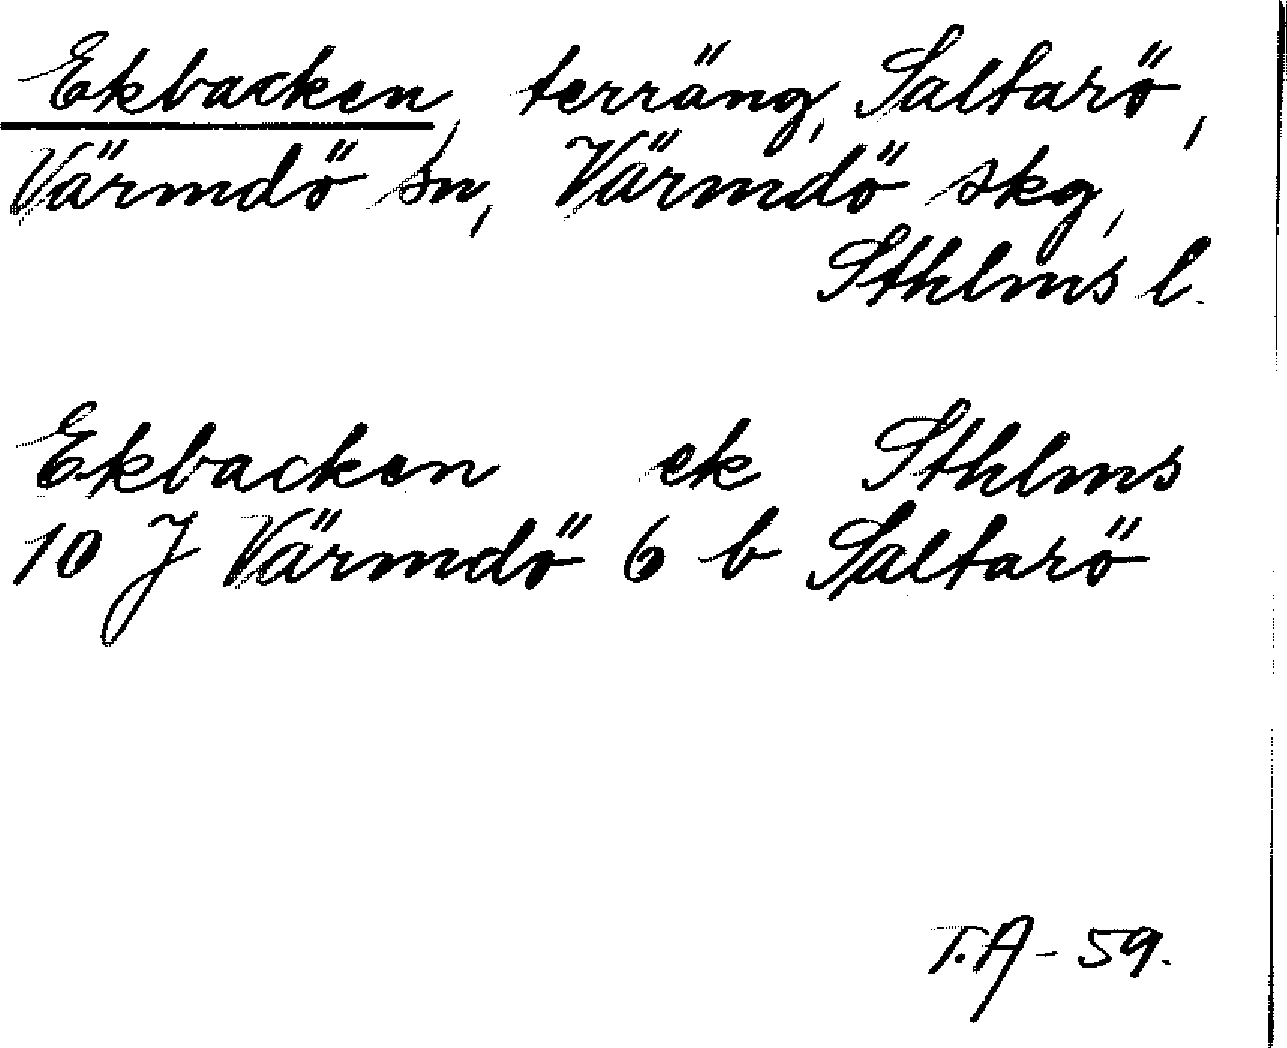 Ekbacken, terräng, Saltarö,
Värmdö sn, Värmdö skg,
Sthlms l.
Ekbacken ek Sthlms
10 J Värmdö 6 b Saltarö
T.A - 59.